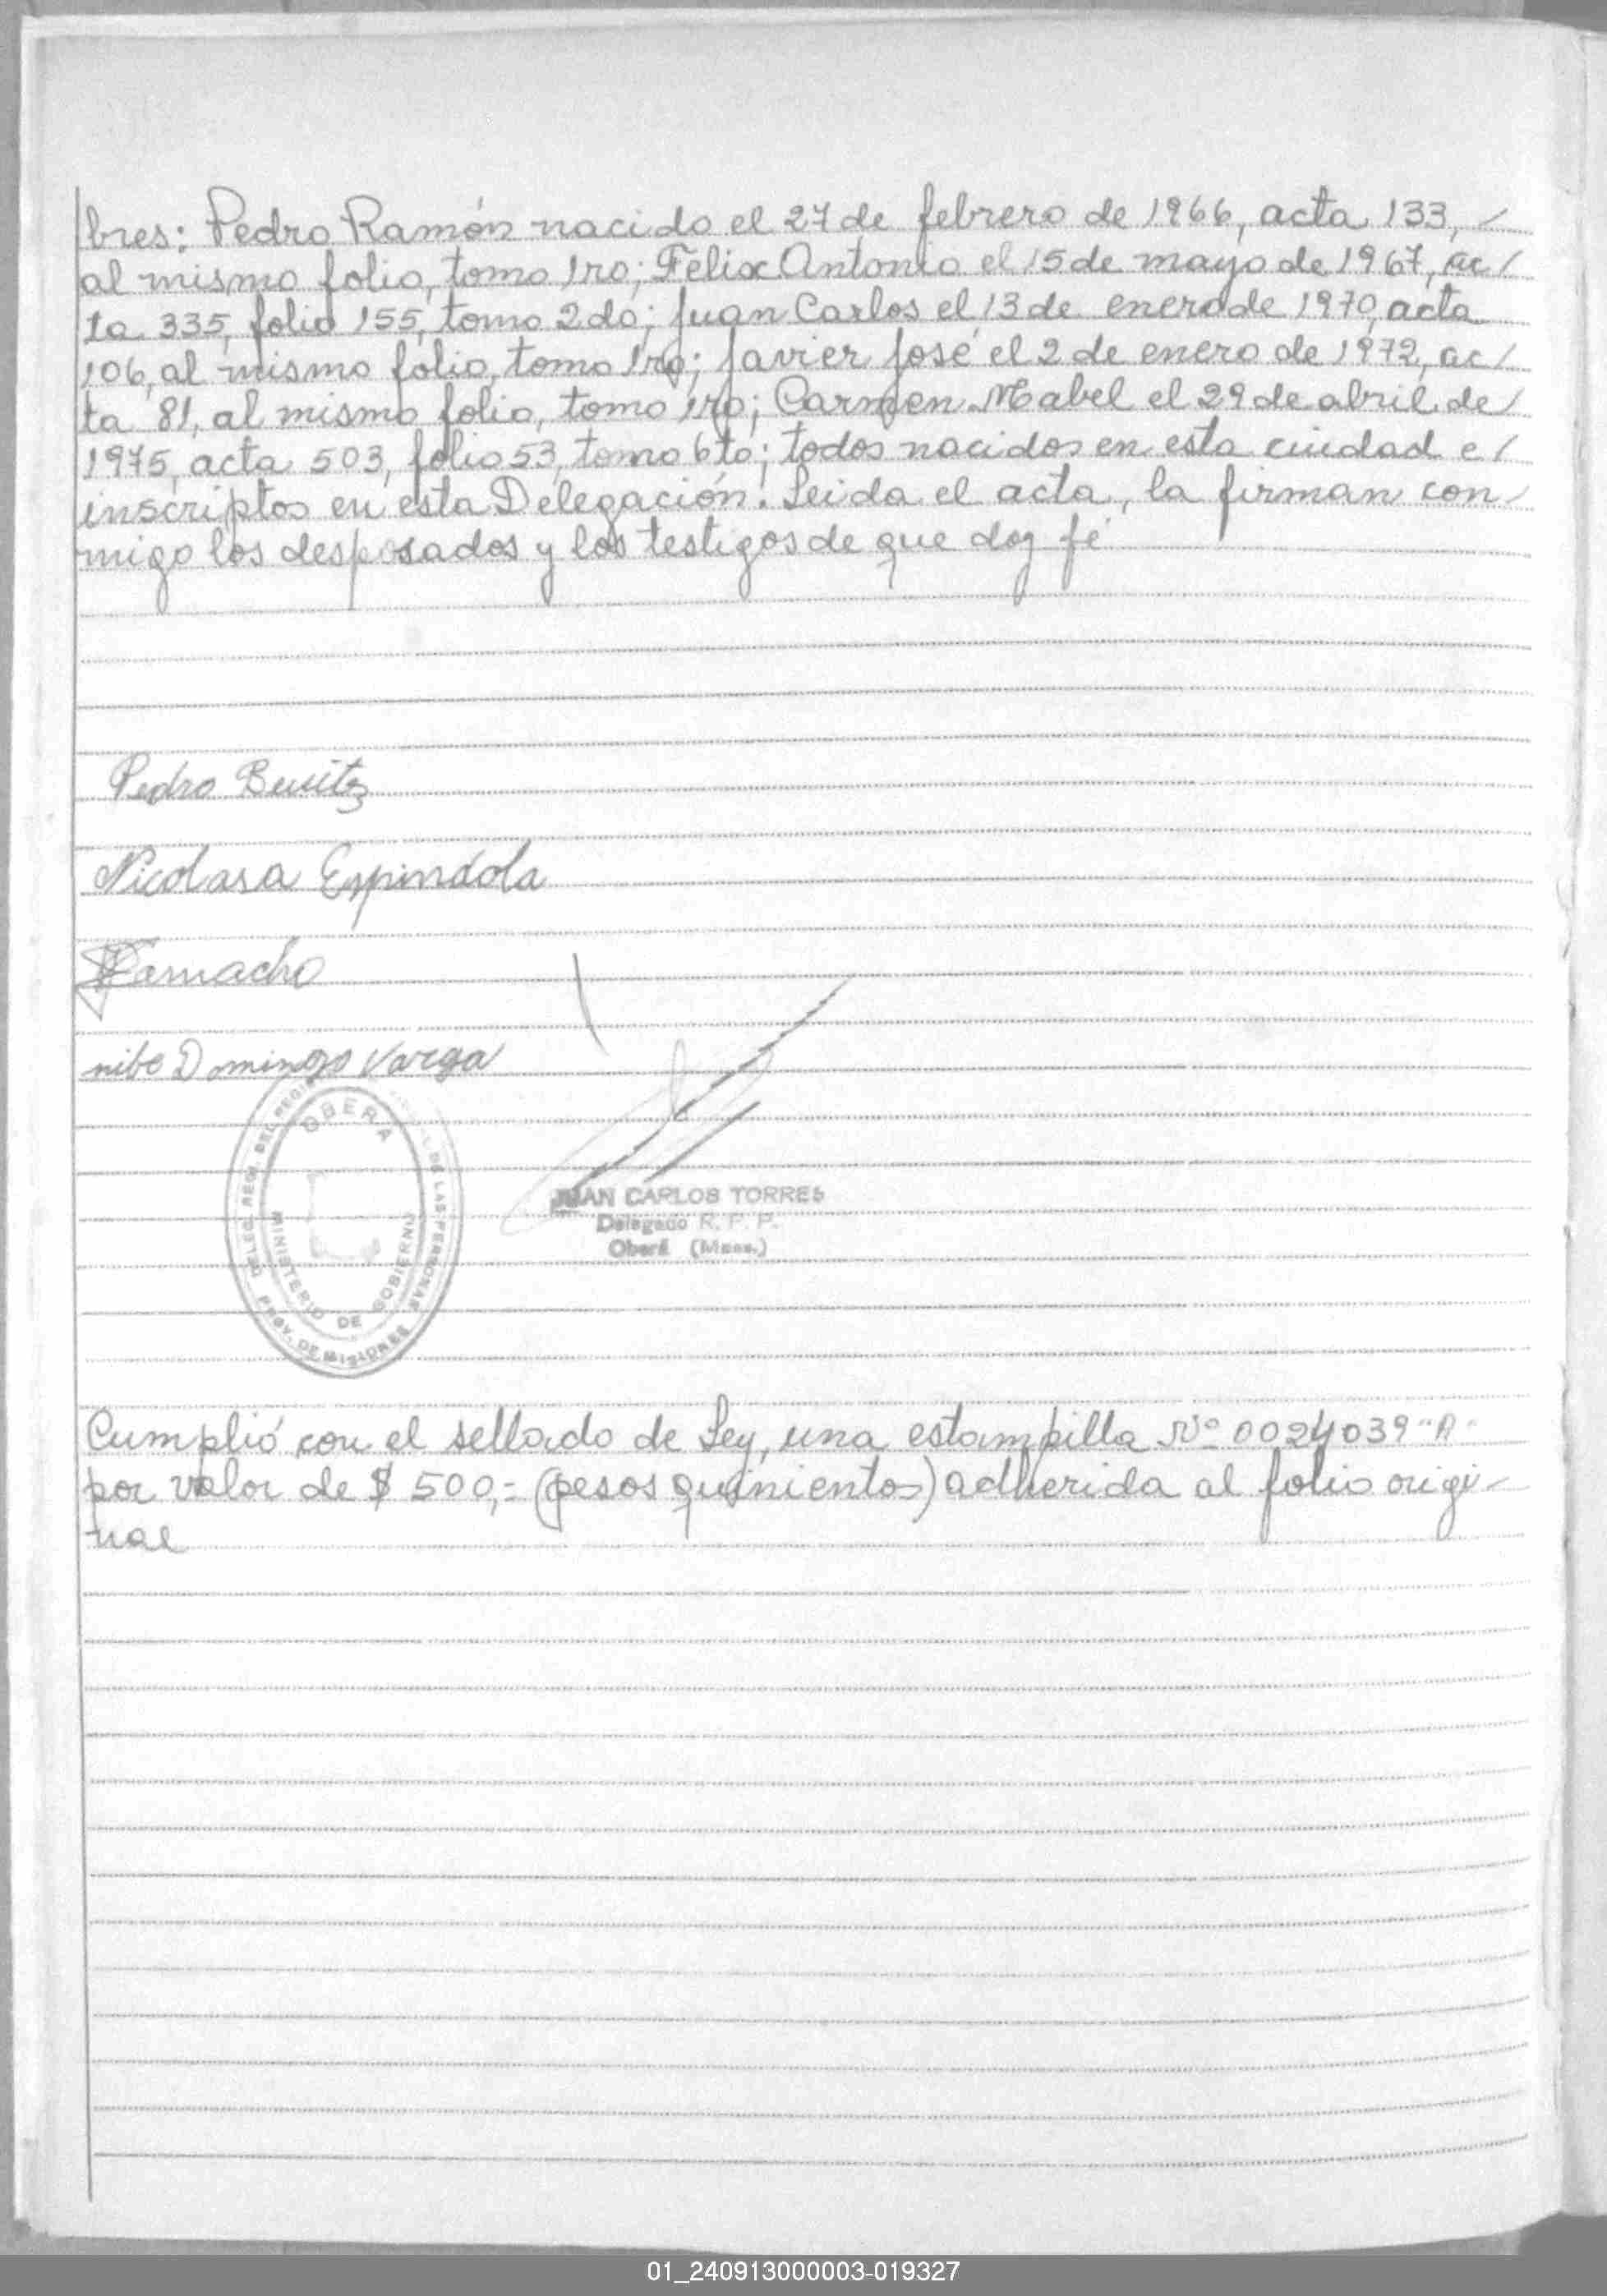 bres: Pedro Ramón nacido el 27 de febrero de 1966, acta 133, /
al mismo folio, tomo 1ro; Felix Antonio el 15 de mayo de 1967, ac/
ta 335, folio 155, tomo 2do; Juan Carlos el 13 de enero de 1970, acta
106, al mismo folio, tomo 1ro; Javier José el 2 de enero de 1972, ac/
ta 81, al mismo folio, tomo 1ro; Carmen Mabel el 29 de abril de/
1975, acta 503, folio 53, tomo 6to; todos nacidos en esta ciudad e/
inscriptos en esta Delegación. Leida el acta, la firman con/
migo los desposados y los testigos de que doy fé
Pedro Benitez
Nicolasa Espindola
Camacho
Domingo Varga
OBERA
DELEG. REG. DEL REG. DE LAS PERSONAS
MINISTERIO DE GOBIERNO
PROV. DE MISIONES
JUAN CARLOS TORRES
Delegado R. P. P.
Oberá (Mnes.)
Cumplió con el sellado de Ley, una estampilla Nº 0024039 "A"
por valor de $ 500,= (pesos quinientos) adherida al folio origi-
nal
01_240913000003-019327